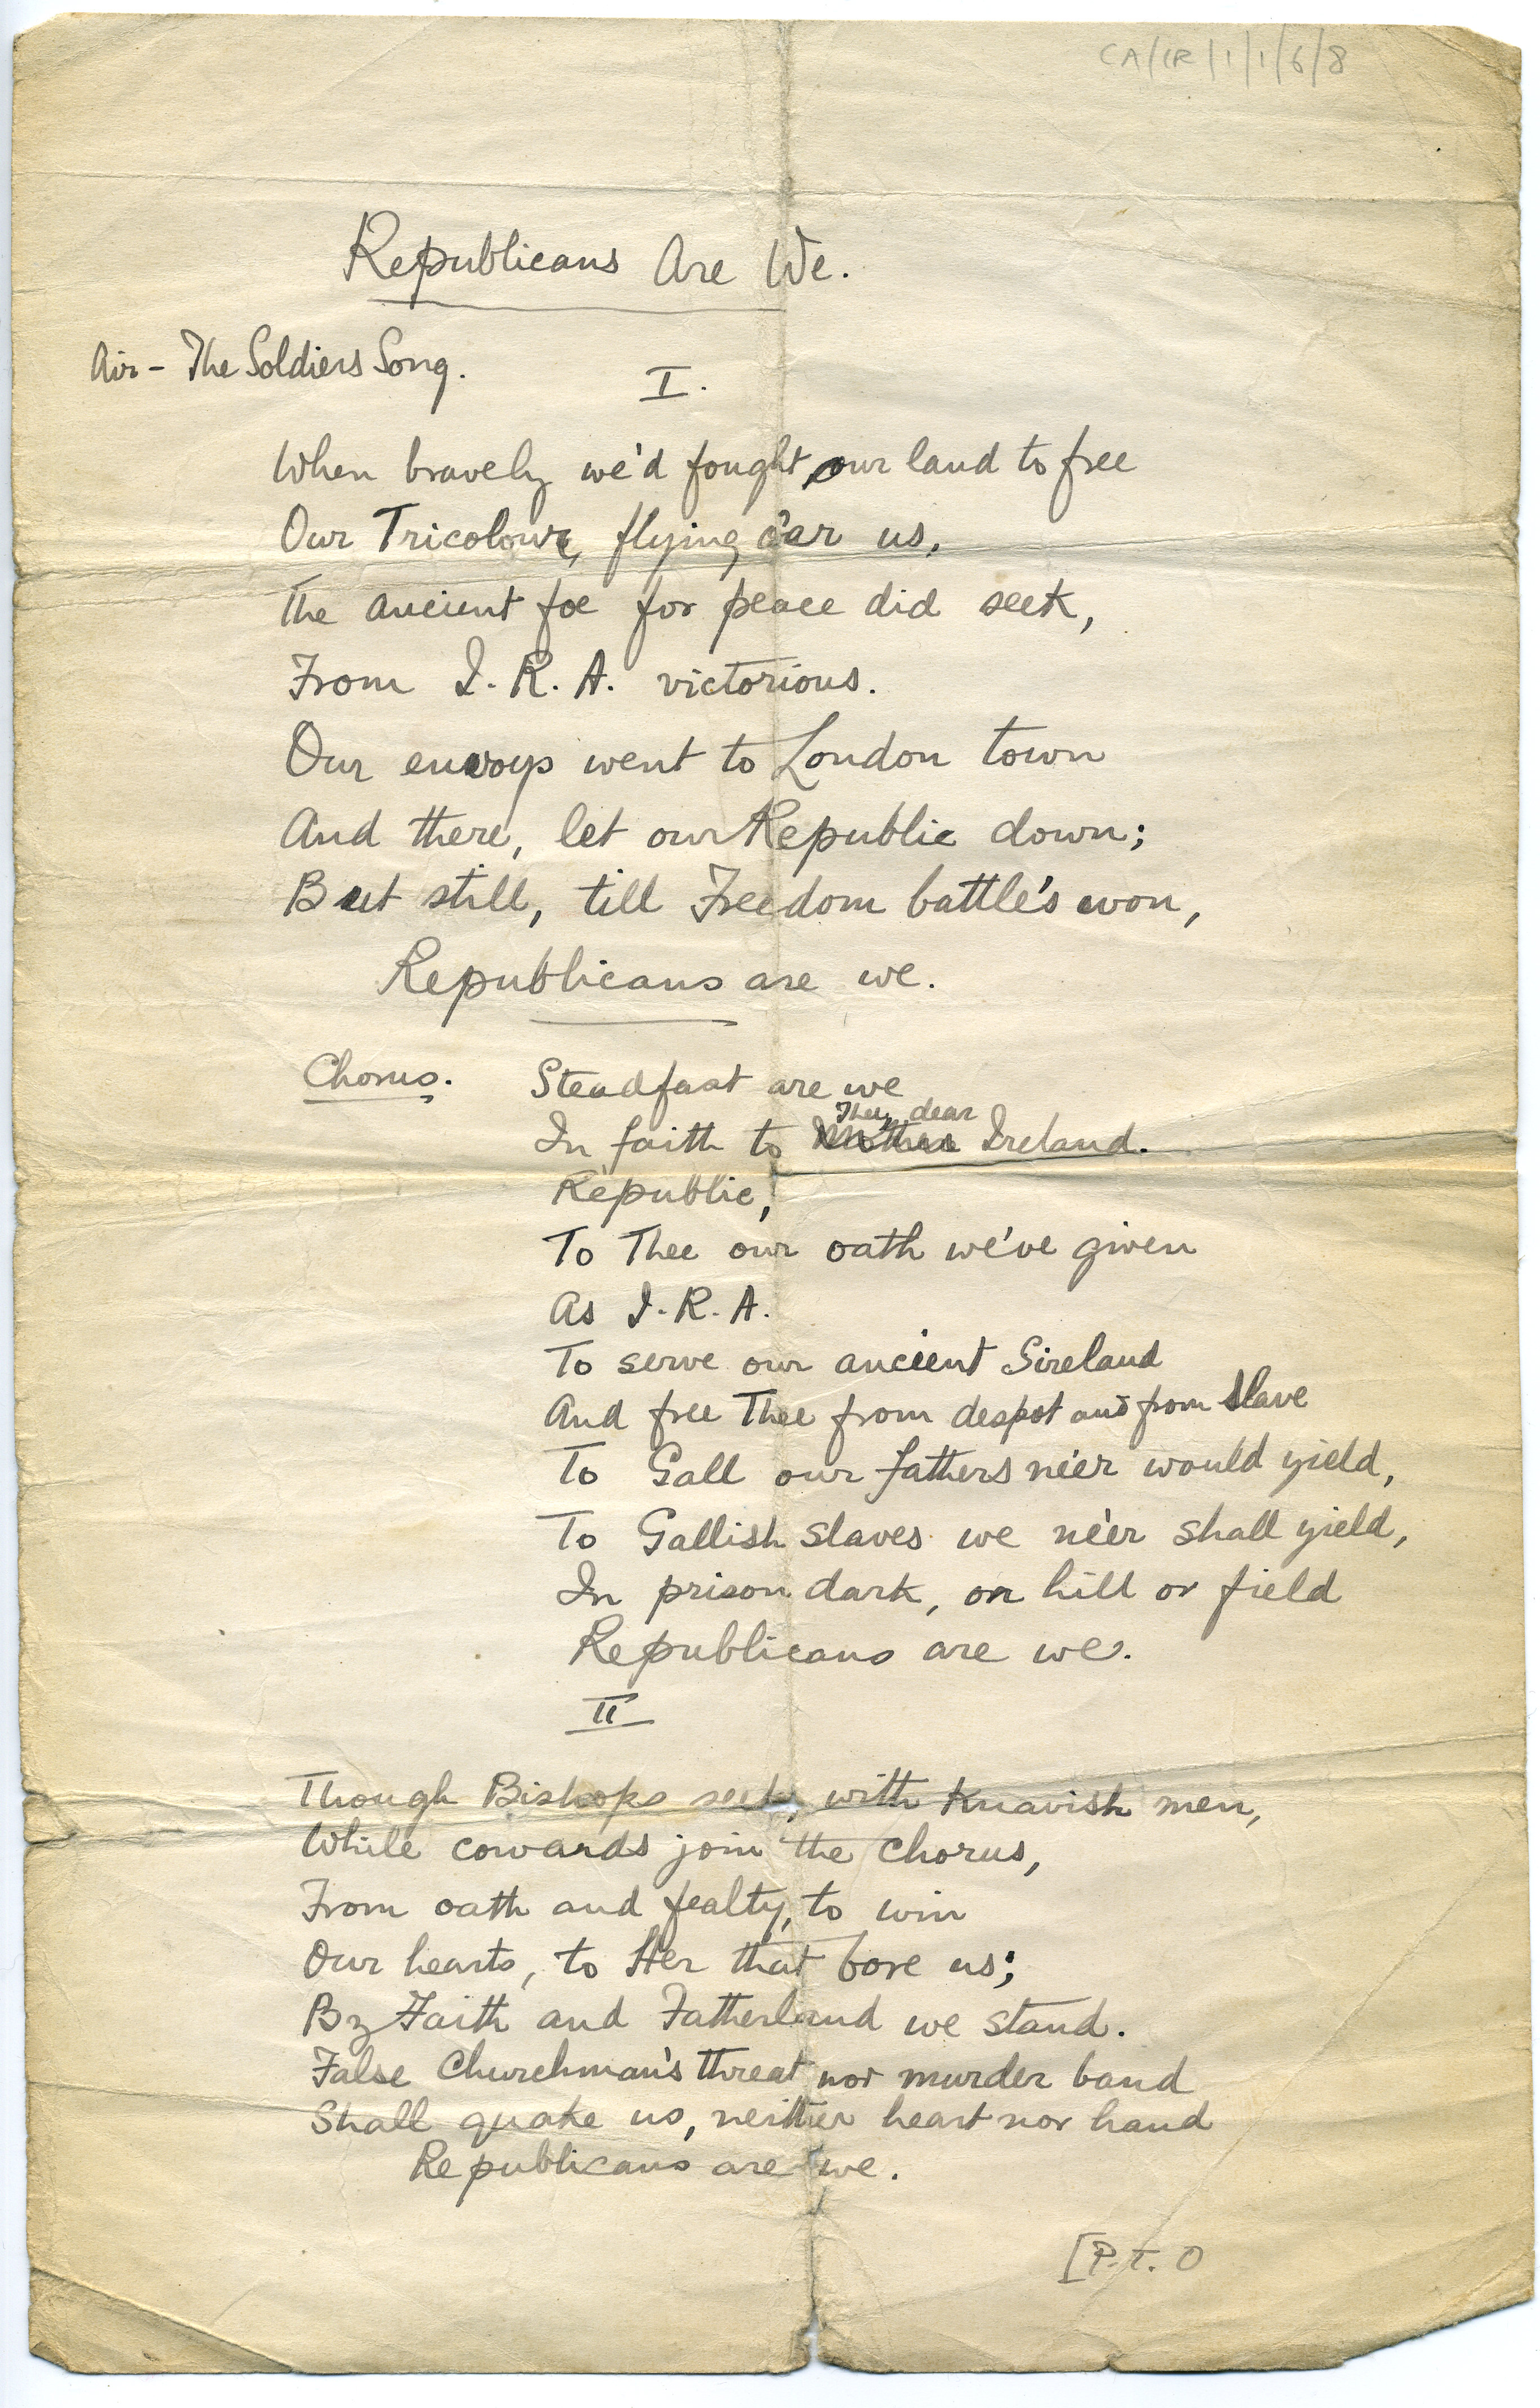 CA/IR/1/1/6/8
Republicans Are We.
Air - The Soldiers Song.
I.
When bravely we'd fought our land to free
Our Tricolour, flying o'ar us,
The ancient foe for peace did seek,
From I. R. A. victorious.
Our envoys went to London town
And there, let our Republic down;
But still, till Freedom battle's won,
Republicans are we.
Chorus. Steadfast are we
Thee, dear
In faith to Mother Ireland.
Republic,
To Thee our oath we've given
As I. R. A.
To serve our ancient Sireland
And free Thee from despot and from slave
To Gall our fathers ne'er would yield,
To Gallish slaves we ne'er shall yield,
In prison dark, on hill or field
Republicans are we.
II
Though Bishops seek, with knavish men,
While cowards join the chorus,
From oath and fealty, to win
Our hearts, to Her that bore us;
By Faith and Fatherland we stand.
False Churchman's threat nor murder band
Shall quake us, neither heart nor hand
Republicans are we.
[P. T. O